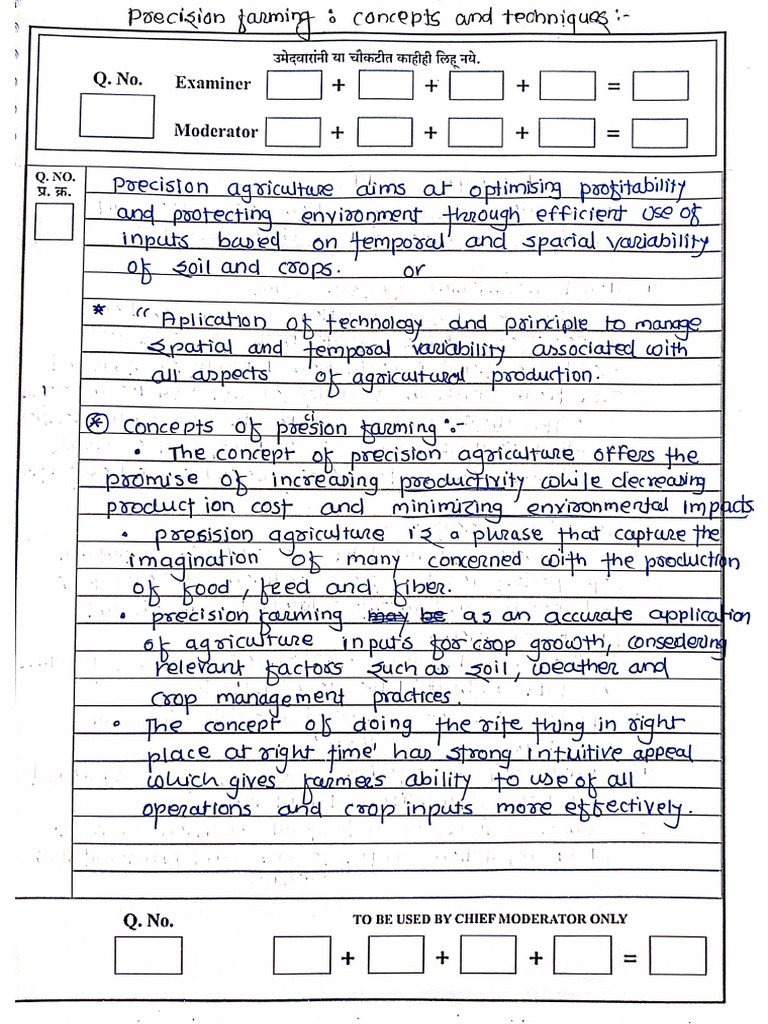 Precision farming : concepts and techniques :-
उमेदवारांनी या चौकटीत काहीही लिहू नये.
Q. No. Examiner + + + =
Moderator + + + =
Q. NO.
प्र. क्र.
Precision agriculture aims at optimising profitability
and protecting environment through efficient use of
inputs based on temporal and spacial variability
of soil and crops. or
* " Aplication of technology and principle to manage
spatial and temporal variability associated with
all aspects of agricultural production.
* Concepts of presion farming :-
ci
• The concept of precision agriculture offers the
promise of increasing productivity while decreasing
production cost and minimizing environmental impacts.
• precision agriculture is a phrase that capture the
imagination of many concerned with the production
of food, feed and fiber.
• precision farming may be as an accurate application
of agriculture inputs for crop growth, consedering
relevant factors such as soil, weather and
crop management practices.
• The concept of doing the rite thing in right
place at right time' has strong intuitive appeal
which gives farmers ability to use of all
operations and crop inputs more effectively.
Q. No. TO BE USED BY CHIEF MODERATOR ONLY
+ + + =